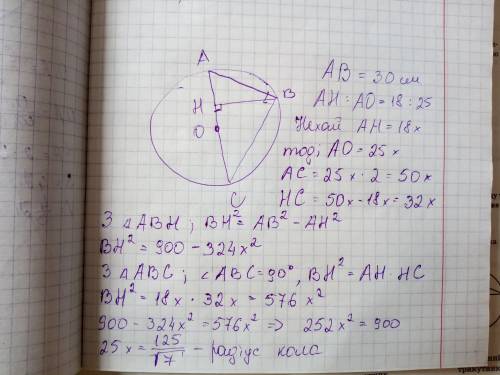 A
B
H
O
C
AB = 30 см
AH : AO = 18 : 25
Нехай AH = 18x
тоді AO = 25x
AC = 25x · 2 = 50x
HC = 50x - 18x = 32x
З △ABH ; BH² = AB² - AH²
BH² = 900 - 324x²
З △ABC ; ∠ABC = 90°, BH² = AH · HC
BH² = 18x · 32x = 576x²
900 - 324x² = 576x² => 252x² = 900
25x = 125/√7 - радіус кола